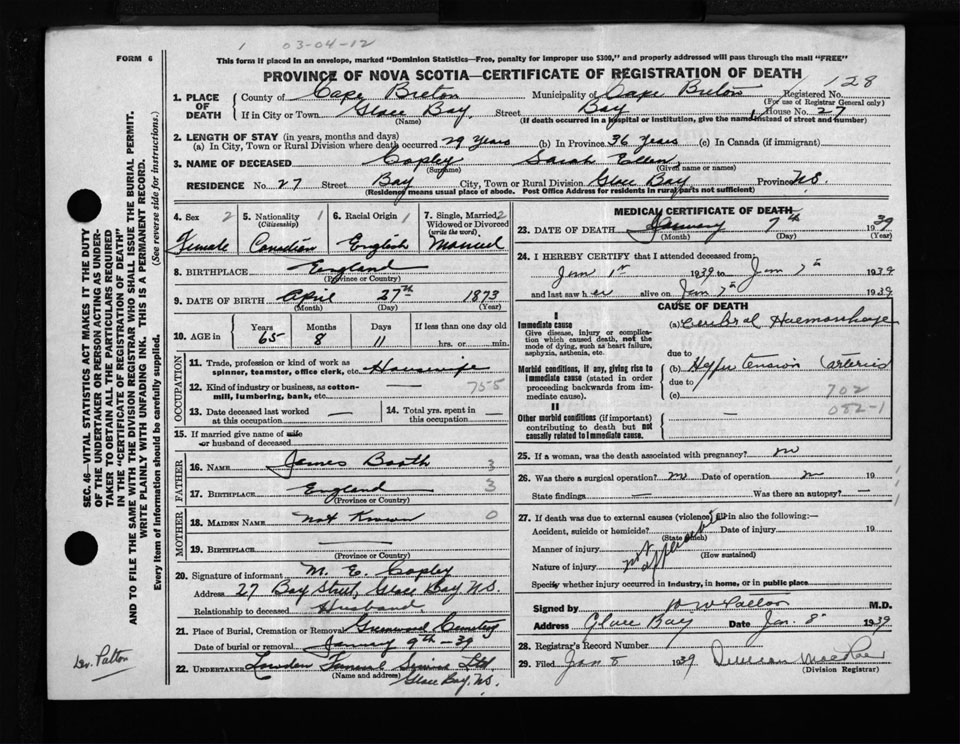 1 03-04-12
FORM 6
This form if placed in an envelope, marked "Dominion Statistics—Free, penalty for improper use $300," and properly addressed will pass through the mail "FREE"
PROVINCE OF NOVA SCOTIA—CERTIFICATE OF REGISTRATION OF DEATH
128
1. PLACE OF DEATH
County of Cape Breton Municipality of Cape Breton Registered No.
(For use of Registrar General only)
If in City or Town Glace Bay Street Bay House No. 27
(Name) (If death occurred in a hospital or institution, give the name instead of street and number)
2. LENGTH OF STAY (in years, months and days)
(a) In City, Town or Rural Division where death occurred 29 Years (b) In Province 36 Years (c) In Canada (if immigrant)
3. NAME OF DECEASED Copley Sarah Ellen
(Surname) (Given name or names)
RESIDENCE No. 27 Street Bay City, Town or Rural Division Glace Bay Province N.S.
(Residence means usual place of abode. Post Office Address for residents in rural parts not sufficient)
4. Sex 2 5. Nationality 1 6. Racial Origin 1 7. Single, Married 2
(Citizenship) Widowed or Divorced
(write the word)
Female Canadian English Married
8. BIRTHPLACE England
(Province or Country)
9. DATE OF BIRTH April 27th 1873
(Month) (Day) (Year)
10. AGE in Years Months Days If less than one day old
65 8 11 hrs. or min.
OCCUPATION
11. Trade, profession or kind of work as spinner, teamster, office clerk, etc. Housewife
12. Kind of industry or business, as cotton-mill, lumbering, bank, etc. 755
13. Date deceased last worked at this occupation — 14. Total yrs. spent in this occupation —
15. If married give name of wife or husband of deceased
FATHER
16. NAME James Booth 3
17. BIRTHPLACE England 3
(Province or Country)
MOTHER
18. MAIDEN NAME Not Known 0
19. BIRTHPLACE —
(Province or Country)
20. Signature of informant M. E. Copley
Address 27 Bay Street, Glace Bay, N.S.
Relationship to deceased Husband
21. Place of Burial, Cremation or Removal Greenwood Cemetery
Date of burial or removal January 9th - 39
22. UNDERTAKER Lowden Funeral Service Ltd
(Name and address) Glace Bay, N.S.
MEDICAL CERTIFICATE OF DEATH
23. DATE OF DEATH January 7th 1939
(Month) (Day) (Year)
24. I HEREBY CERTIFY that I attended deceased from:
Jan 1st 1939 to Jan 7th 1939
and last saw her alive on Jan 7th 1939
CAUSE OF DEATH
I
Immediate cause (a) Cerebral Haemorrhage
Give disease, injury or complication which caused death, not the mode of dying, such as heart failure, asphyxia, asthenia, etc.
due to
Morbid conditions, if any, giving rise to immediate cause (stated in order proceeding backwards from immediate cause).
(b) Hypertension (arterio
due to
(c) 702
082-1
II
Other morbid conditions (if important) contributing to death but not causally related to immediate cause.
25. If a woman, was the death associated with pregnancy? no
26. Was there a surgical operation? no Date of operation no 19
State findings — Was there an autopsy? —
27. If death was due to external causes (violence) fill in also the following:—
Accident, suicide or homicide? Date of injury 19
(State which)
Manner of injury
(How sustained)
Nature of injury
not applicable
Specify whether injury occurred in industry, in home, or in public place
Signed by M.D.
Address Glace Bay Date Jan. 8 1939
28. Registrar's Record Number
29. Filed Jan 8 1939 Duncan MacRae
(Division Registrar)
SEC. 46—VITAL STATISTICS ACT MAKES IT THE DUTY OF THE UNDERTAKER OR PERSON ACTING AS UNDERTAKER TO OBTAIN ALL THE PARTICULARS REQUIRED IN THE "CERTIFICATE OF REGISTRATION OF DEATH" AND TO FILE THE SAME WITH THE DIVISION REGISTRAR WHO SHALL ISSUE THE BURIAL PERMIT.
WRITE PLAINLY WITH UNFADING INK. THIS IS A PERMANENT RECORD.
Every item of information should be carefully supplied. (See reverse side for instructions.)
Patton